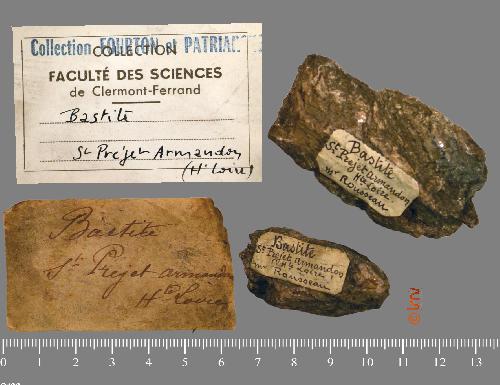 Collection FOURTON et PATRIAC
COLLECTION
FACULTÉ DES SCIENCES
de Clermont-Ferrand
Bastite
St Préjet Armandon
(Hte Loire)
Bastite
St Prejet armandon
Hte Loire
Bastite
St Prejet armandon
Hte Loire
Mr Rousseau
Bastite
St Prejet armandon
(Hte Loire)
Mr Rousseau
0 1 2 3 4 5 6 7 8 9 10 11 12 13